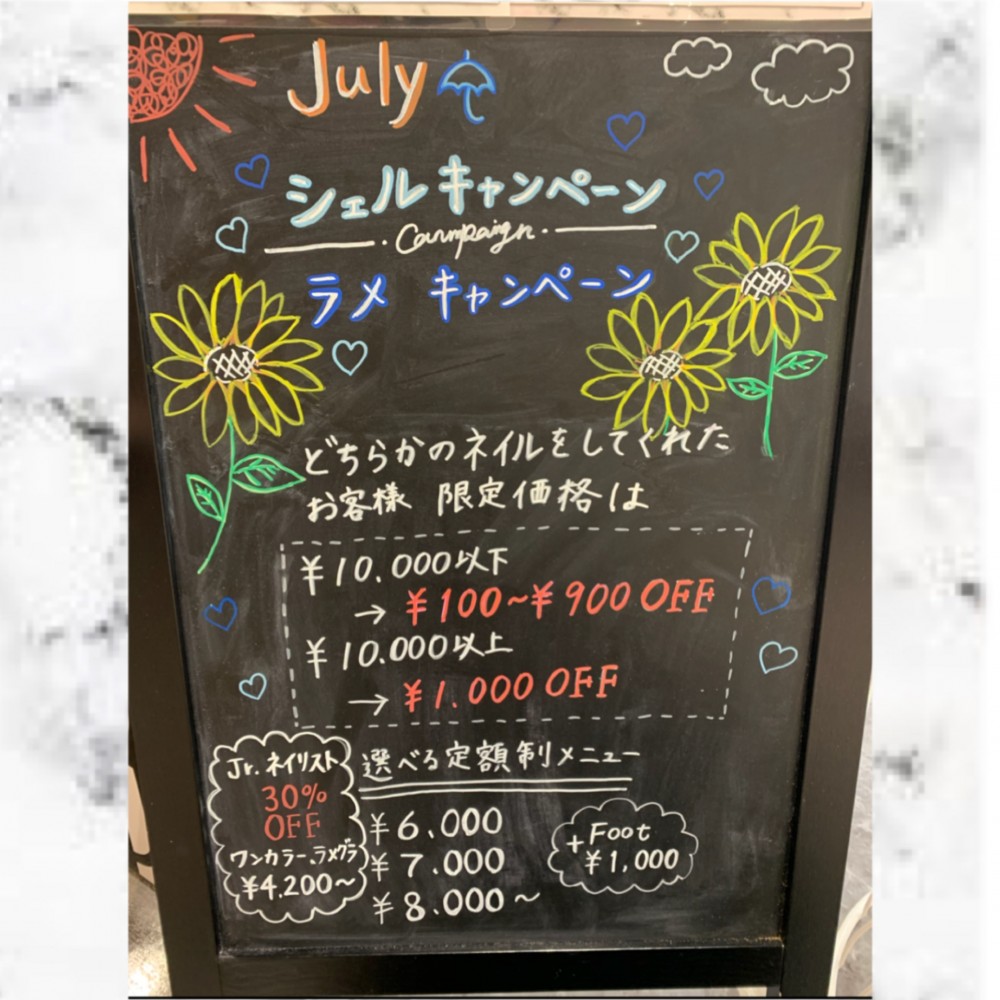 July
シェルキャンペーン
・Campaign・
ラメ キャンペーン
どちらかのネイルをしてくれた
お客様 限定価格は
¥10.000以下
→ ¥100~¥900 OFF
¥10.000以上
→ ¥1.000 OFF
Jr.ネイリスト
30%
OFF
ワンカラー、ラメグラ
¥4,200~
選べる定額制メニュー
¥6.000
¥7.000
¥8.000~
+Foot
¥1,000